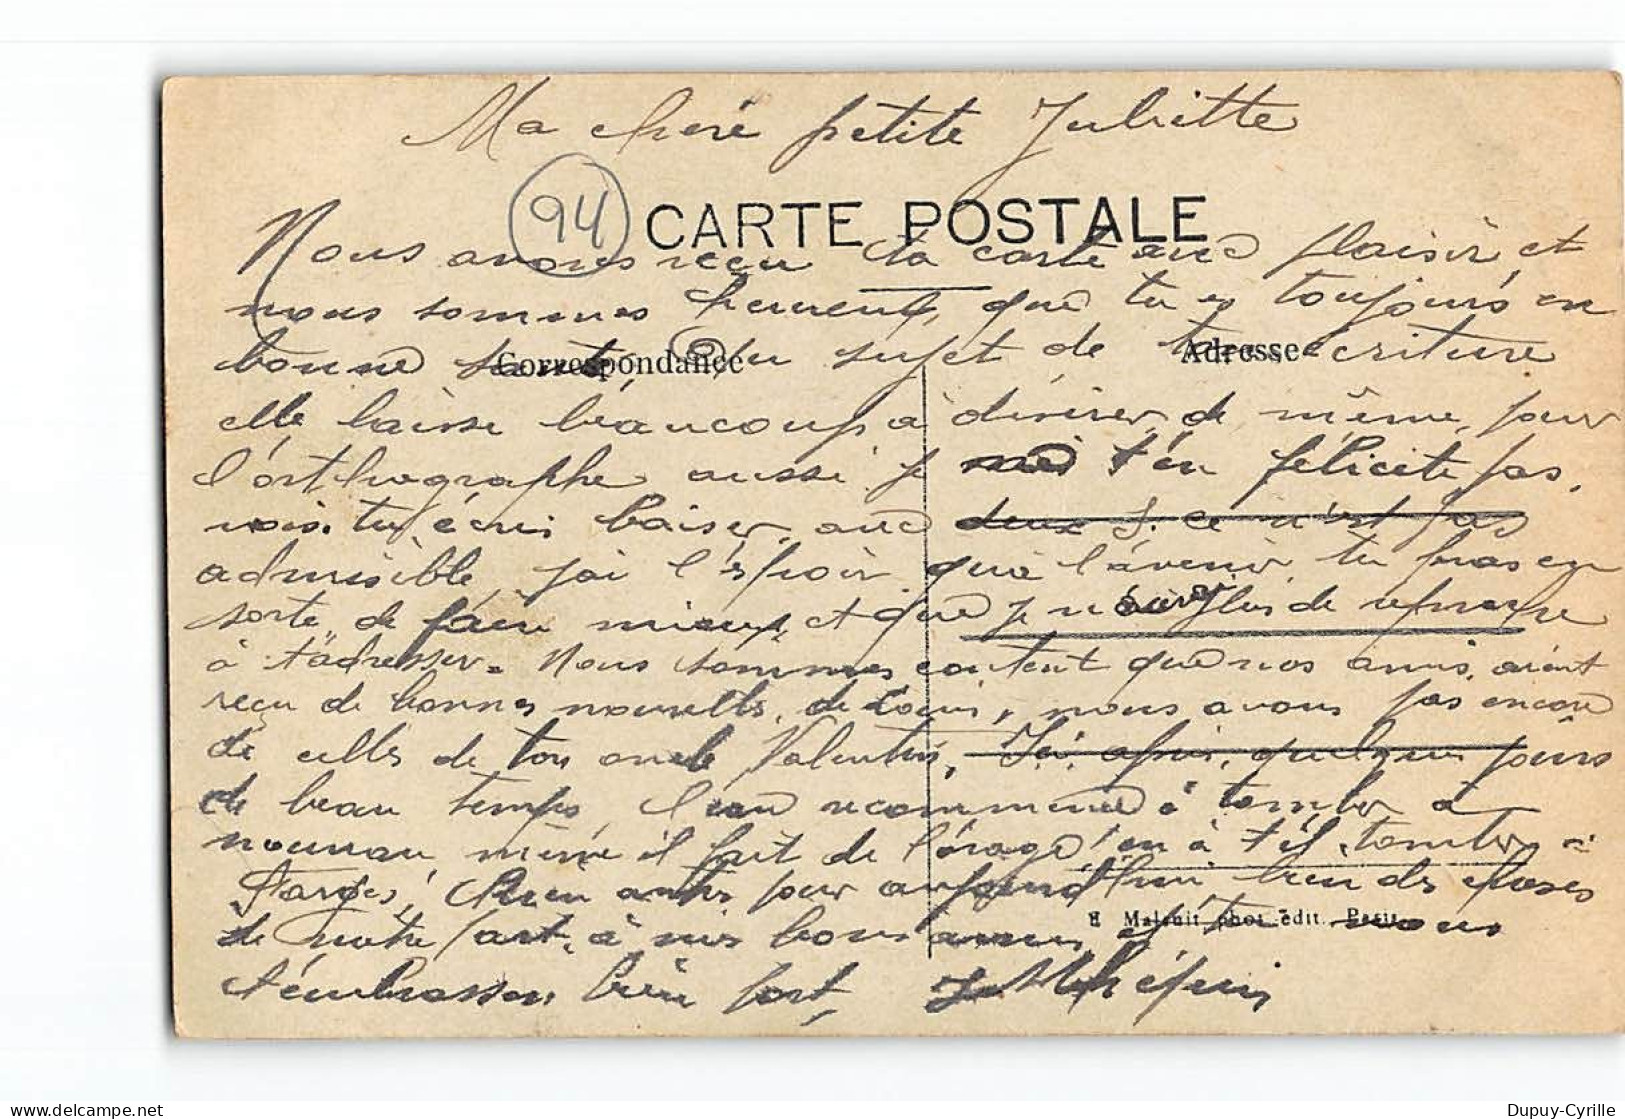 Ma cheré petite Juliette
94
CARTE POSTALE
Nous avons recu ta carte avec plaisir et
nous sommes heureux, que tu es toujours en
bonne santé, du sujet de ton écriture
Correspondance
Adresse
elle laisse beaucoup à désirer, de même, pour
l'orthographe aussi je t'én félicite pas,
vois-tu écris baiser, avec deux S. ce n'est pas
admissible, j'ai l'éspoir qu'à l'avenir, tu fras en
sorte de faire mieux, et que je n'aurai plus de reproche
à t'adresser. Nous sommes content que nos amis, aient
reçu de bonnes nouvelles, de Louis, nous avons pas encore
de celles de ton oncle Valentin, Ici, après, quelques jours
de beau temps, l'eau recommence à tomber à
nouveau, même il fait de l'órage, en à t'il, tomber à
Farges, Rien autre pour aujourd'hui, bien des choses
de notre part, à nos bons amis, et tu nous
E. Malcuit phot. édit. Paris
t'émbrassons bien fort,
Dupuy-Cyrille